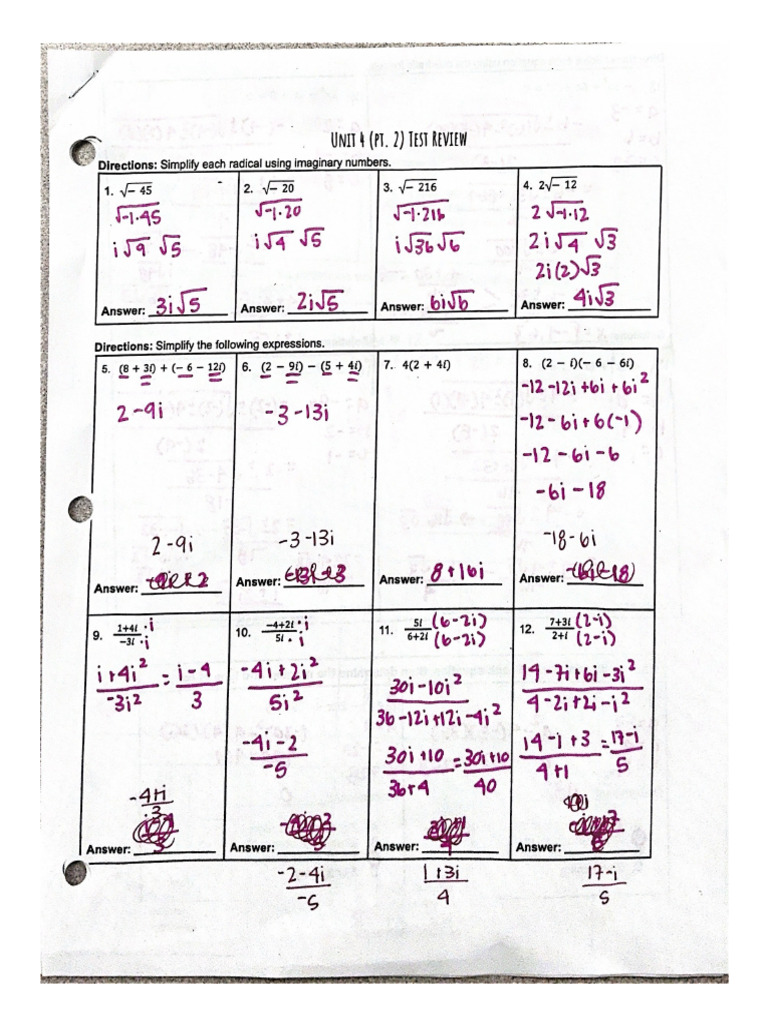 UNIT 4 (PT. 2) TEST REVIEW
Directions: Simplify each radical using imaginary numbers.
1. √– 45
√-1·45
i√9 √5
Answer: 3i√5
2. √– 20
√-1·20
i√4 √5
Answer: 2i√5
3. √– 216
√-1·216
i√36 √6
Answer: 6i√6
4. 2√– 12
2√-1·12
2i√4 √3
2i(2)√3
Answer: 4i√3
Directions: Simplify the following expressions.
5. (8 + 3i) + (– 6 – 12i)
2-9i
2-9i
Answer:
6. (2 – 9i) – (5 + 4i)
-3-13i
-3-13i
Answer:
7. 4(2 + 4i)
Answer: 8+16i
8. (2 – i)(– 6 – 6i)
-12-12i+6i+6i²
-12-6i+6(-1)
-12-6i-6
-6i-18
-18-6i
Answer:
9. 1+4i/-3i ·i/·i
i+4i²/-3i² = i-4/3
-4+i/3
Answer:
10. -4+2i/5i ·i/·i
-4i+2i²/5i²
-4i-2/-5
Answer:
-2-4i/-5
11. 5i/6+2i (6-2i)/(6-2i)
30i-10i²/36-12i+12i-4i²
30i+10/36+4 = 30i+10/40
Answer:
1+3i/4
12. 7+3i/2+i (2-i)/(2-i)
14-7i+6i-3i²/4-2i+2i-i²
14-i+3/4+1 = 17-i/5
Answer:
17-i/5